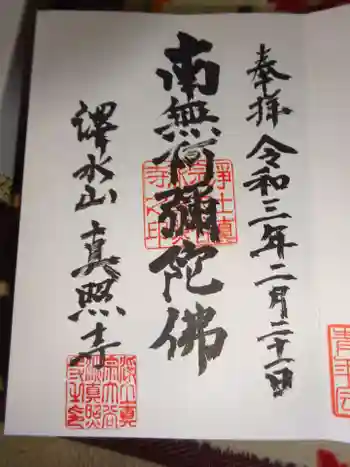 奉拝 令和三年二月二十一日
南無阿彌陀佛
澤水山 真照寺